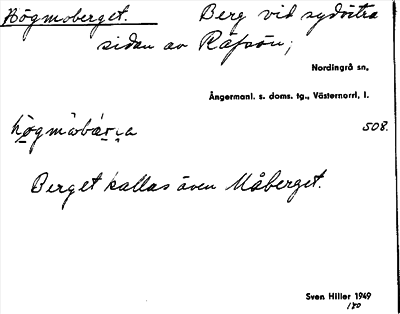 Högmoberget. Berg vid sydöstra
sidan av Råfsön;
Nordingrå sn,
Ångermanl. s. doms. tg., Västernorrl, l.
508.
Berget kallas även Måberget.
Sven Hiller 1949
180